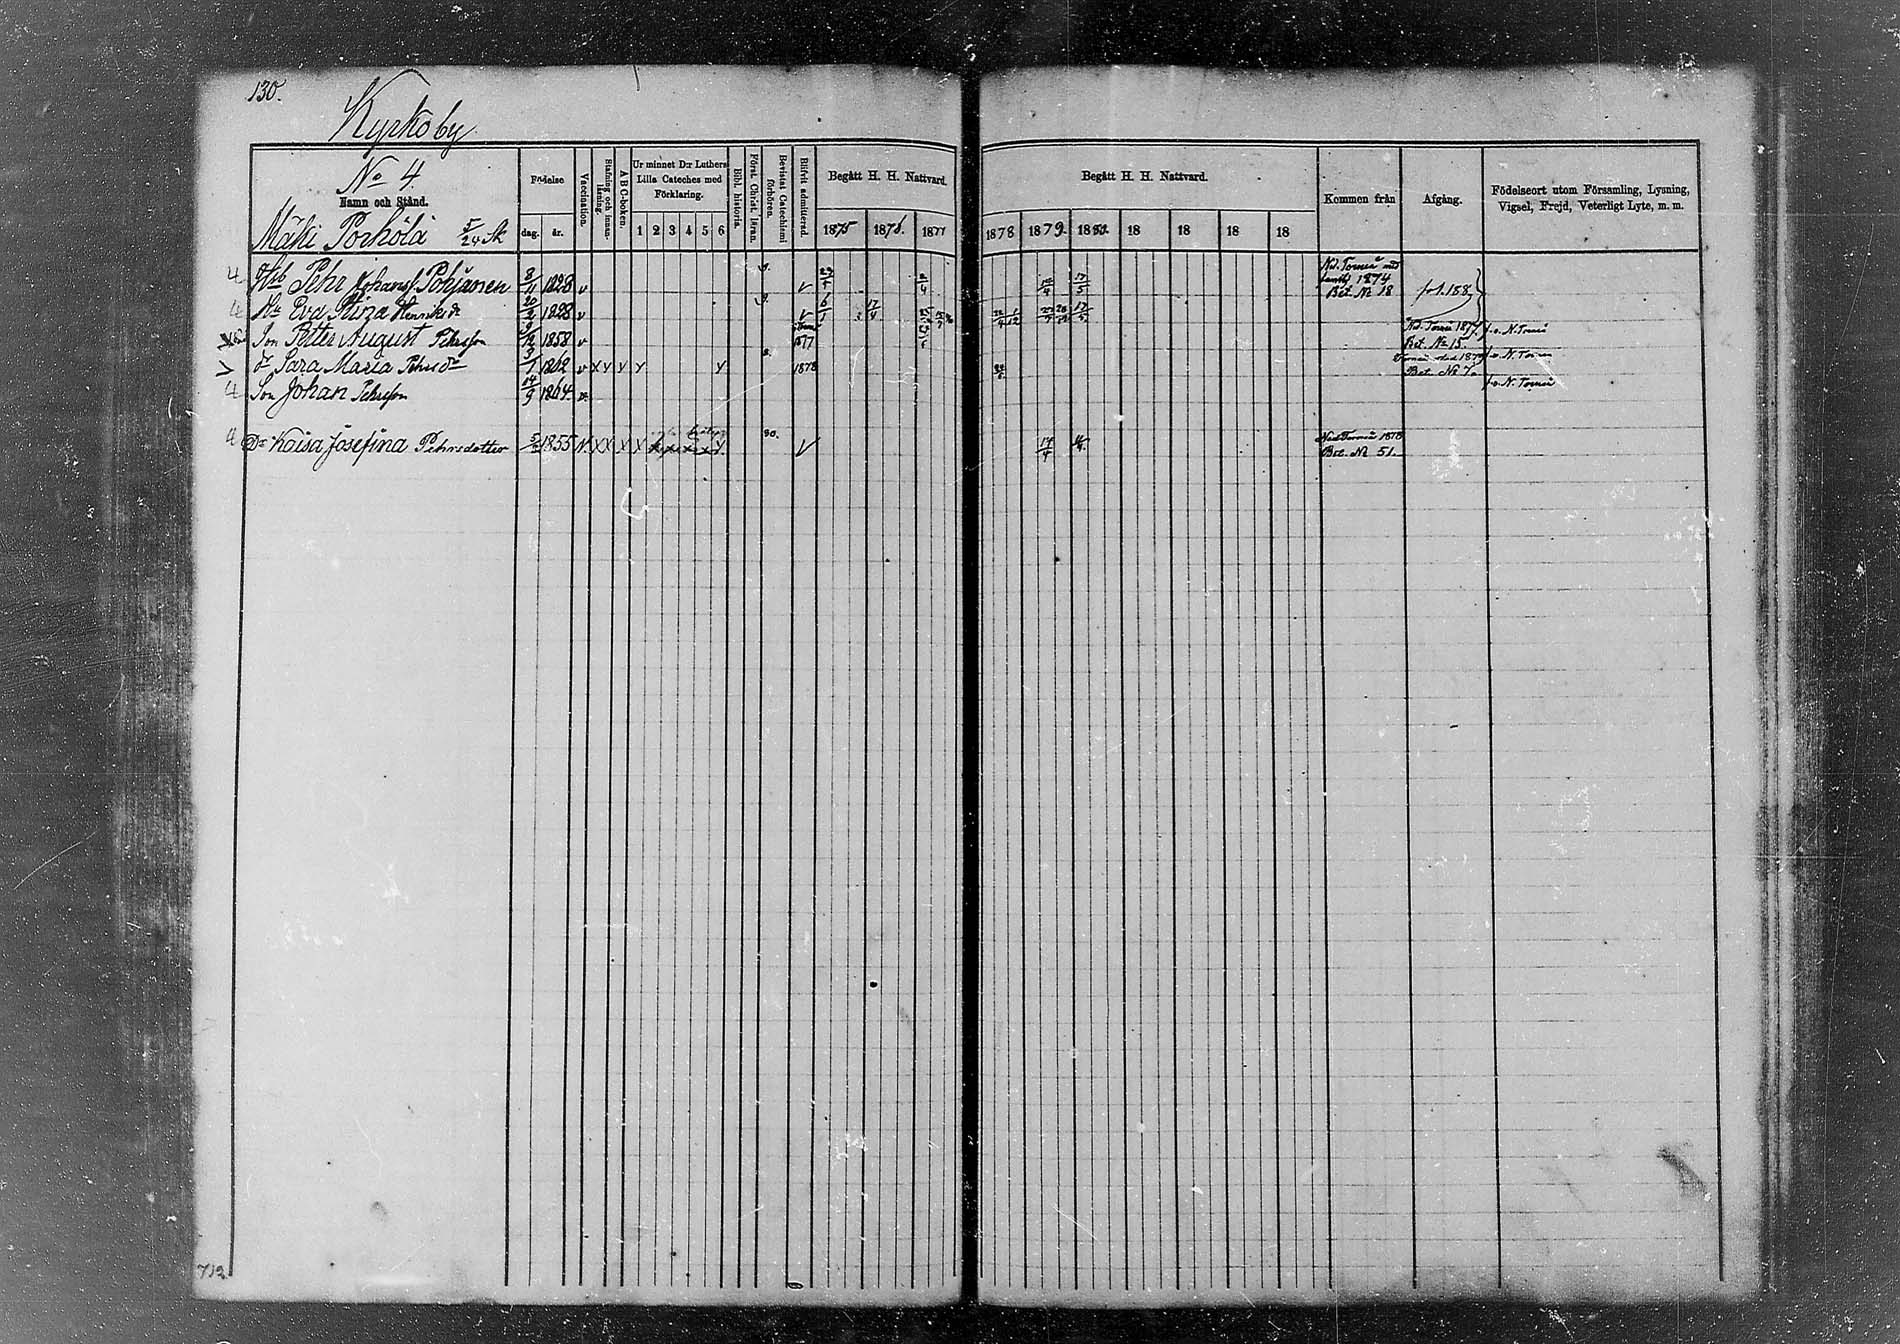 130.
Kyrkoby
No 4.
Namn och Stånd.
Mäki Porhölä 5/24 Mt
Födelse
dag. år.
Vaccination.
Stafning och innanläsning.
A B C-boken.
Ur minnet D:r Luthers Lilla Cateches med Förklaring.
1 2 3 4 5 6
Bibl. historia.
Först. Christ. läran.
Bevistat Catechismi förhören.
Blifvit admitterad.
Begått H. H. Nattvard.
1875 1876. 1877
Begått H. H. Nattvard.
1878 1879. 1880. 18 18 18 18
Kommen från
Afgång.
Födelseort utom Församling, Lysning, Vigsel, Frejd, Veterligt Lyte, m. m.
4 Pehr Johansf. Pohjanen 8/11 1828 v v Ned. Torneå 1874 Bet. No 18 fol. 158
4 Hu Eva Henriksdr 20/2 1828 v v 17/4 17/5
Son Petter August Pehrsson 9/12 1858 v 1877 Ned. Torneå 1877. Bet. No 15. f. o. N. Torneå
V dr Sara Maria Pehrsdr 3/1 1862 v x y y y y 1878 Bet. No 7. f. o. N. Torneå
4 Son Johan Pehrsson 14/9 1864 v. f. o. N. Torneå
4 Dr Kaisa Josefina Pehrsdotter 1855 80. v 14/4 Ned Torneå 1878 Bet. No 51.
712